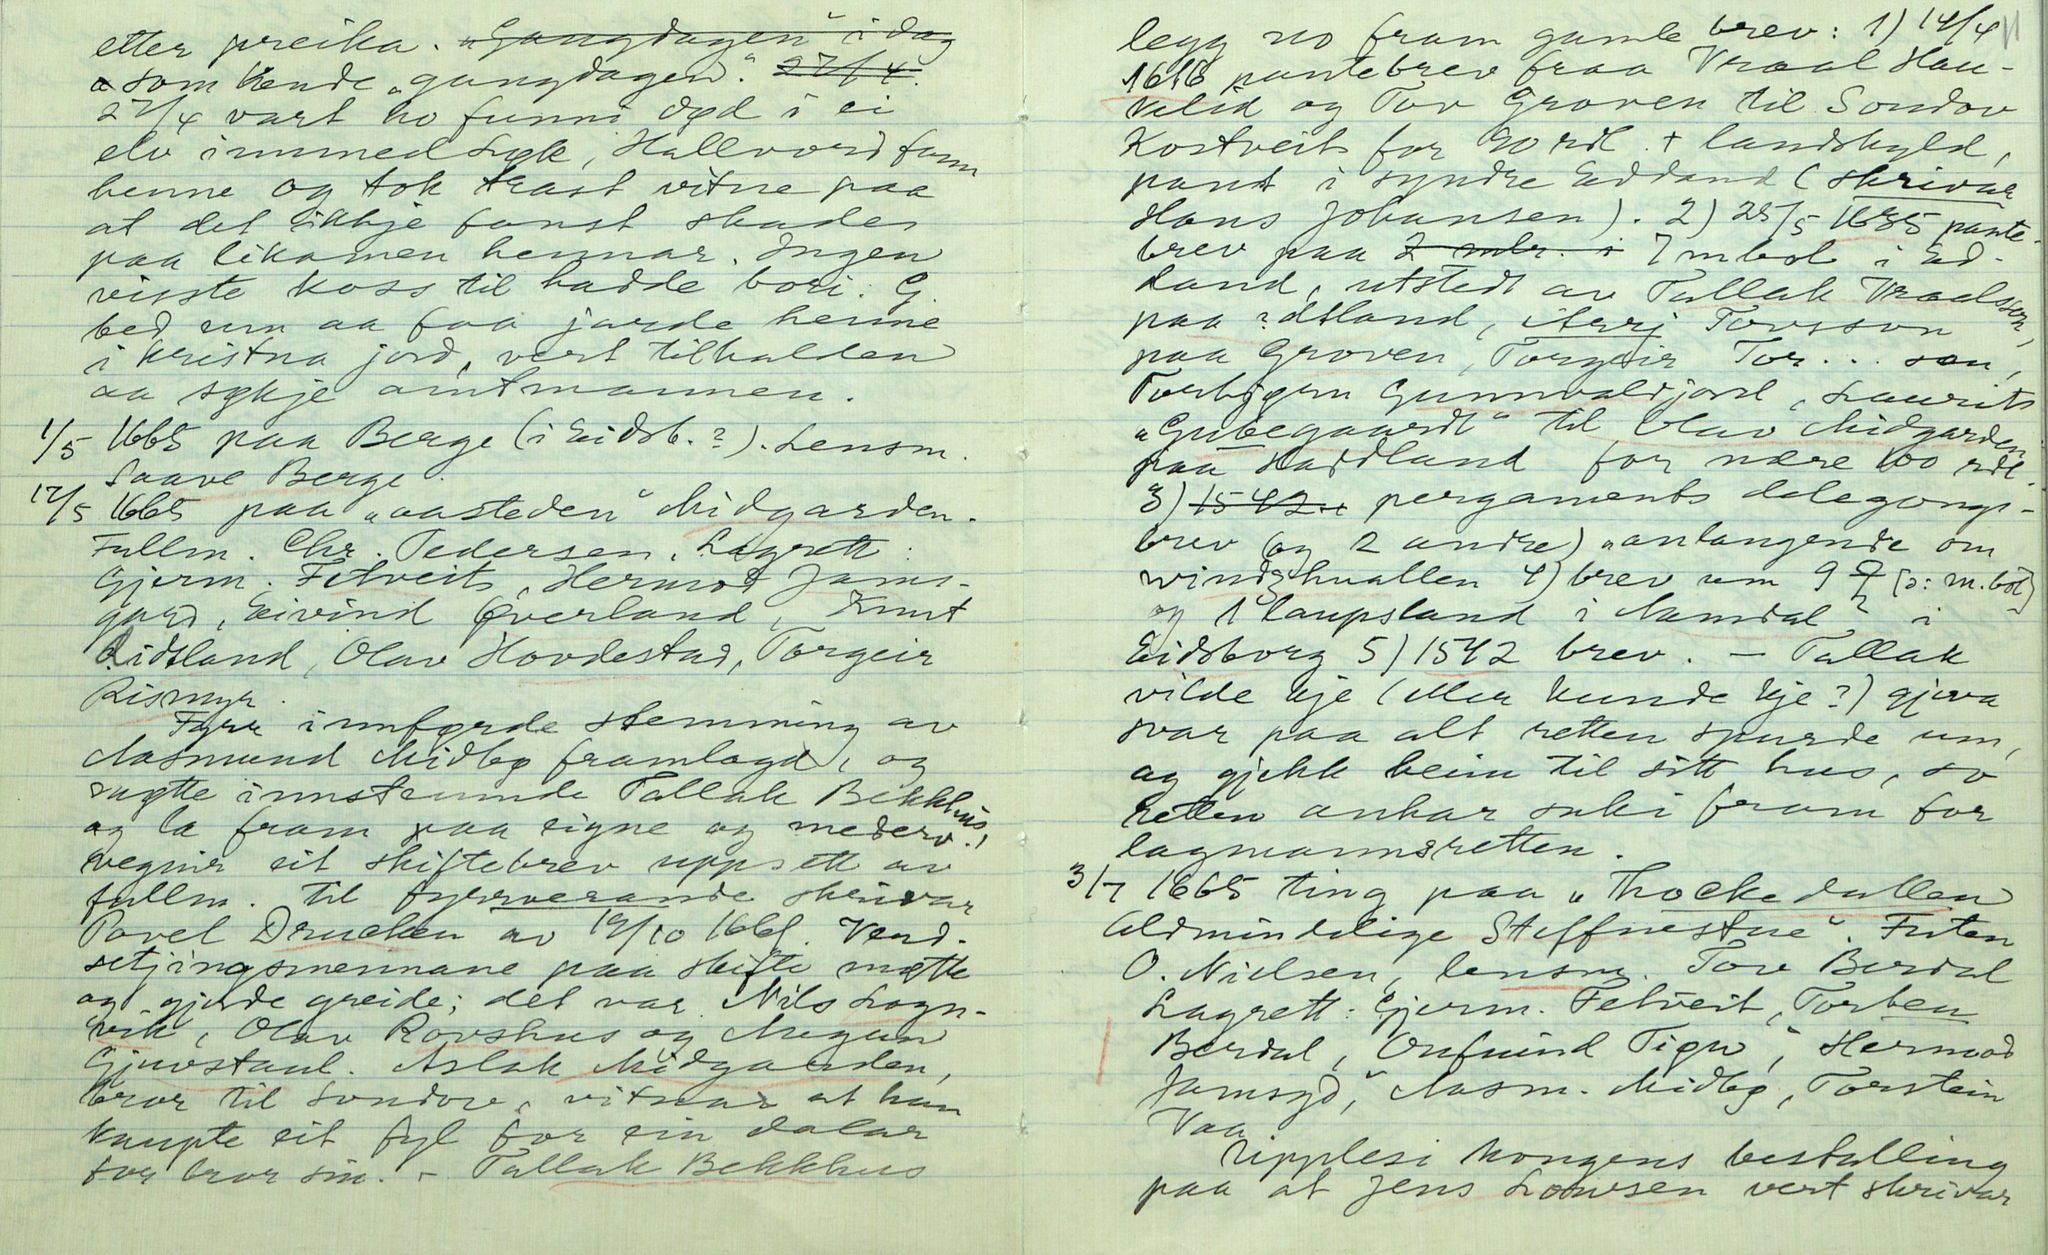 etter preika. „Gangdagen" i dag
a som kende „gangdagen". 27/4.
27/4 vart ho funni død i ei
elv innmed Syk, Hallvord fann
henne og tok trast vitne paa
at det ikkje fanst skader
paa likamen hennar. Ingen
visste koss til hadde bori. G.
bed um aa faa jorde henne
i kristna jord, vert tilhalden
aa søkje amtmannen.
1/5 1665 paa Berge (i Eidsb.?). Lensm.
Saave Berge.
12/5 1665 paa „aasteden" Midgarden.
Fullm. Chr. Pedersen. Lagrett:
Gjerm. Felveit, Hermod Jams-
gard, Eivind Øverland, Knut
Eidtland, Olav Hovdestad, Torgeir
Rismyr.
Fyrr innførde stemning av
Aasmund Midbø framlagd, og
møtte innstemnde Tallak Bekkhus,
og la fram paa eigne og mederv.,
vegnir eit skiftebrev uppsett av
fullm. til fyrrverande skrivar
Povel Drucken av 19/10 1661. Verd-
setjingsmennane paa skifte møtte
og gjorde greide; det var Nils Logn-
vik, Olav Rovshus og
Gjuvstaul. Aslak Midgarden,
bror til Sondov, vitnar at han
kaupte eit føl for ein dalar
for bror sin. – Tallak Bekkhus
legg no fram gamle brev: 1) 14/4
1616 pantebrev fraa Vraal Hau-
kelid og Tov Groven til Sondov
Kostveit for 90 rdl. + landskyld,
pant i syndre Eddand (skrivar
Hans Johansen). 2) 25/5 1635 pante-
brev paa 2 mbr. i 7 mbol i Ed-
land, utstedt av Tallak Vraalsson,
paa ?dtland, Tovsson
paa Groven, Torgeir Tor... son,
Torbjørn Gunnvaldjord, Laurits
„Gubegaardt" til Olav Midgarden
paa Haddland for nære 100 rdl.
3) 1542.. pergaments delegongs-
brev (og 2 andre) „anlangende om
windshuallen 4) brev um 9 [ɔ: m.bol]
og 1 laupsland i Namdal? i
Eidsborg 5) 1542 brev. – Tallak
vilde kje (eller kunde kje?) gjeva
svar paa alt retten spurde um,
og gjekk heim til sitt hus, so
retten ankar saki fram for
lagmannsretten.
3/7 1665 ting paa „Thockedallen
Aldmindelige Steffnestue". Futen
O. Nielsen, lensm. Tov Berdal
Lagrett: Gjerm. Felveit, Torben
Berdal, „Onfuind Tigw", Hermod
Jamsgd, Aasm. Midbø, Torstein
Vaa
Upplesi kongens bestalling
paa at Jens Lowsen vert skrivar